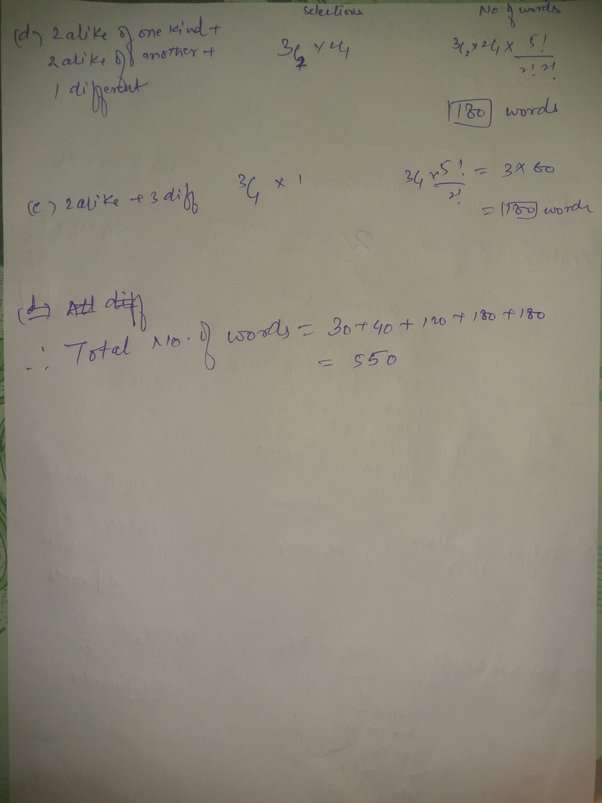 Selections No. of words
(d) 2 alike of one kind +
2 alike of another + 3C2 × 2C1 3C2 × 2C1 × 5!/2!2!
1 different
180 words
(e) 2 alike + 3 diff 3C1 × 1 3C1 × 5!/2! = 3 × 60
= 180 words
(d) All diff
∴ Total No. of words = 30 + 40 + 120 + 180 + 180
= 550